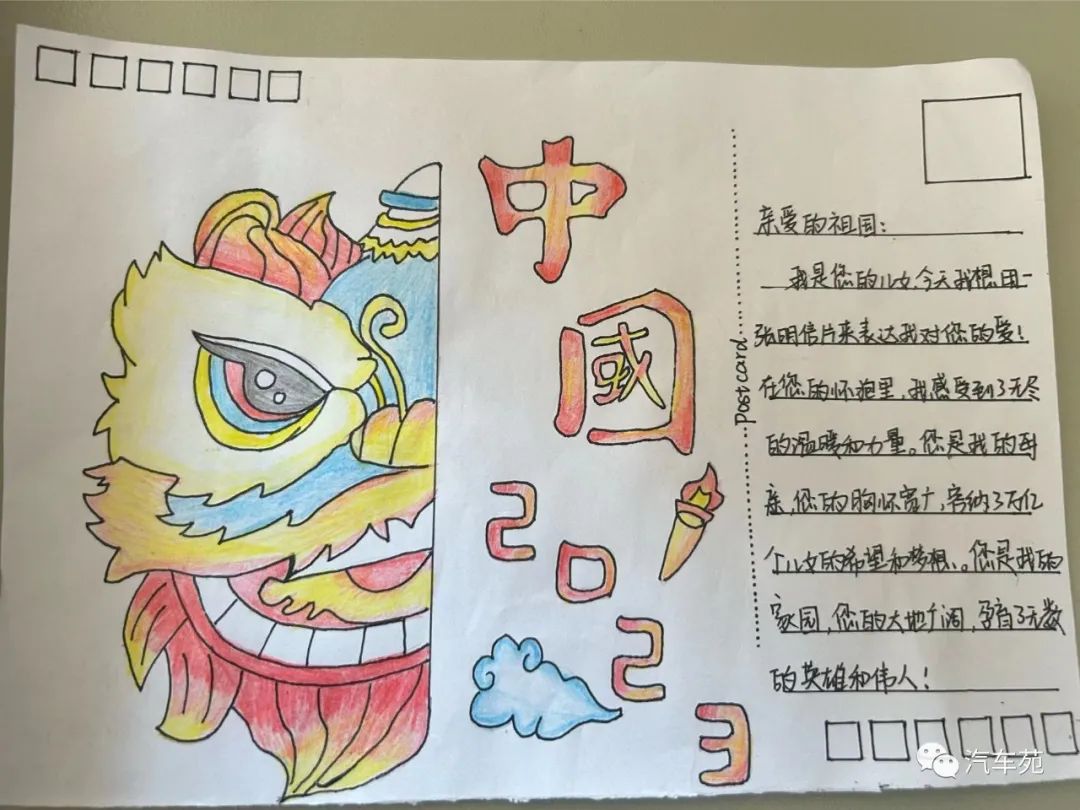 中
國
2
0
2
3
Postcard
亲爱的祖国：
我是您的儿女，今天我想用一
张明信片来表达我对您的爱！
在您的怀抱里，我感受到了无尽
的温暖和力量。您是我的母
亲，您的胸怀宽广，容纳了万亿
个儿女的希望和梦想。您是我的
家园，您的大地广阔，孕育了无数
的英雄和伟人！
汽车苑